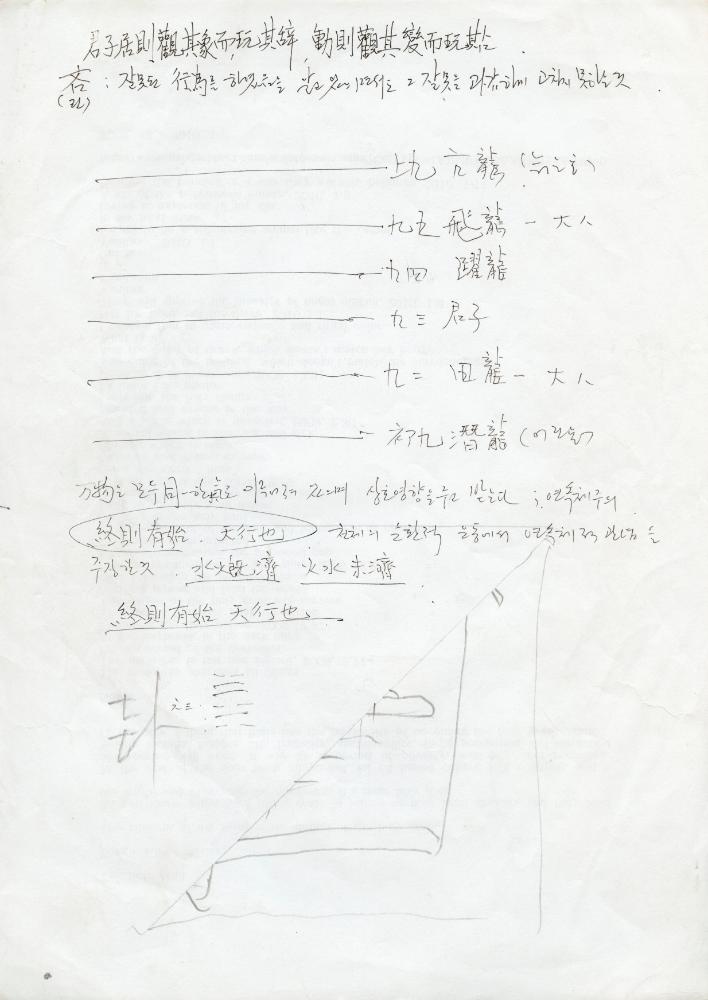 君子居則觀其象而玩其辭 動則觀其變而玩其占.
吝 : 잘못된 行爲를 하였음을 알고 있으면서도 그 잘못을 과감하게 고치지 못하는 것.
(린)
上九 亢龍
九五 飛龍 - 大人
九四 躍龍
九三 君子
九二 田龍 - 大人
初九 潛龍 (어린용)
万物은 모두 同一한 氣로 이루어져 있으며 상호영향을 주고 받는다 ; 연속체주의
終則有始. 天行也 천체의 순환적 운동에서 연속체적 관념을
주장한 것. 水火旣濟 火水未濟.
終則有始 天行也.